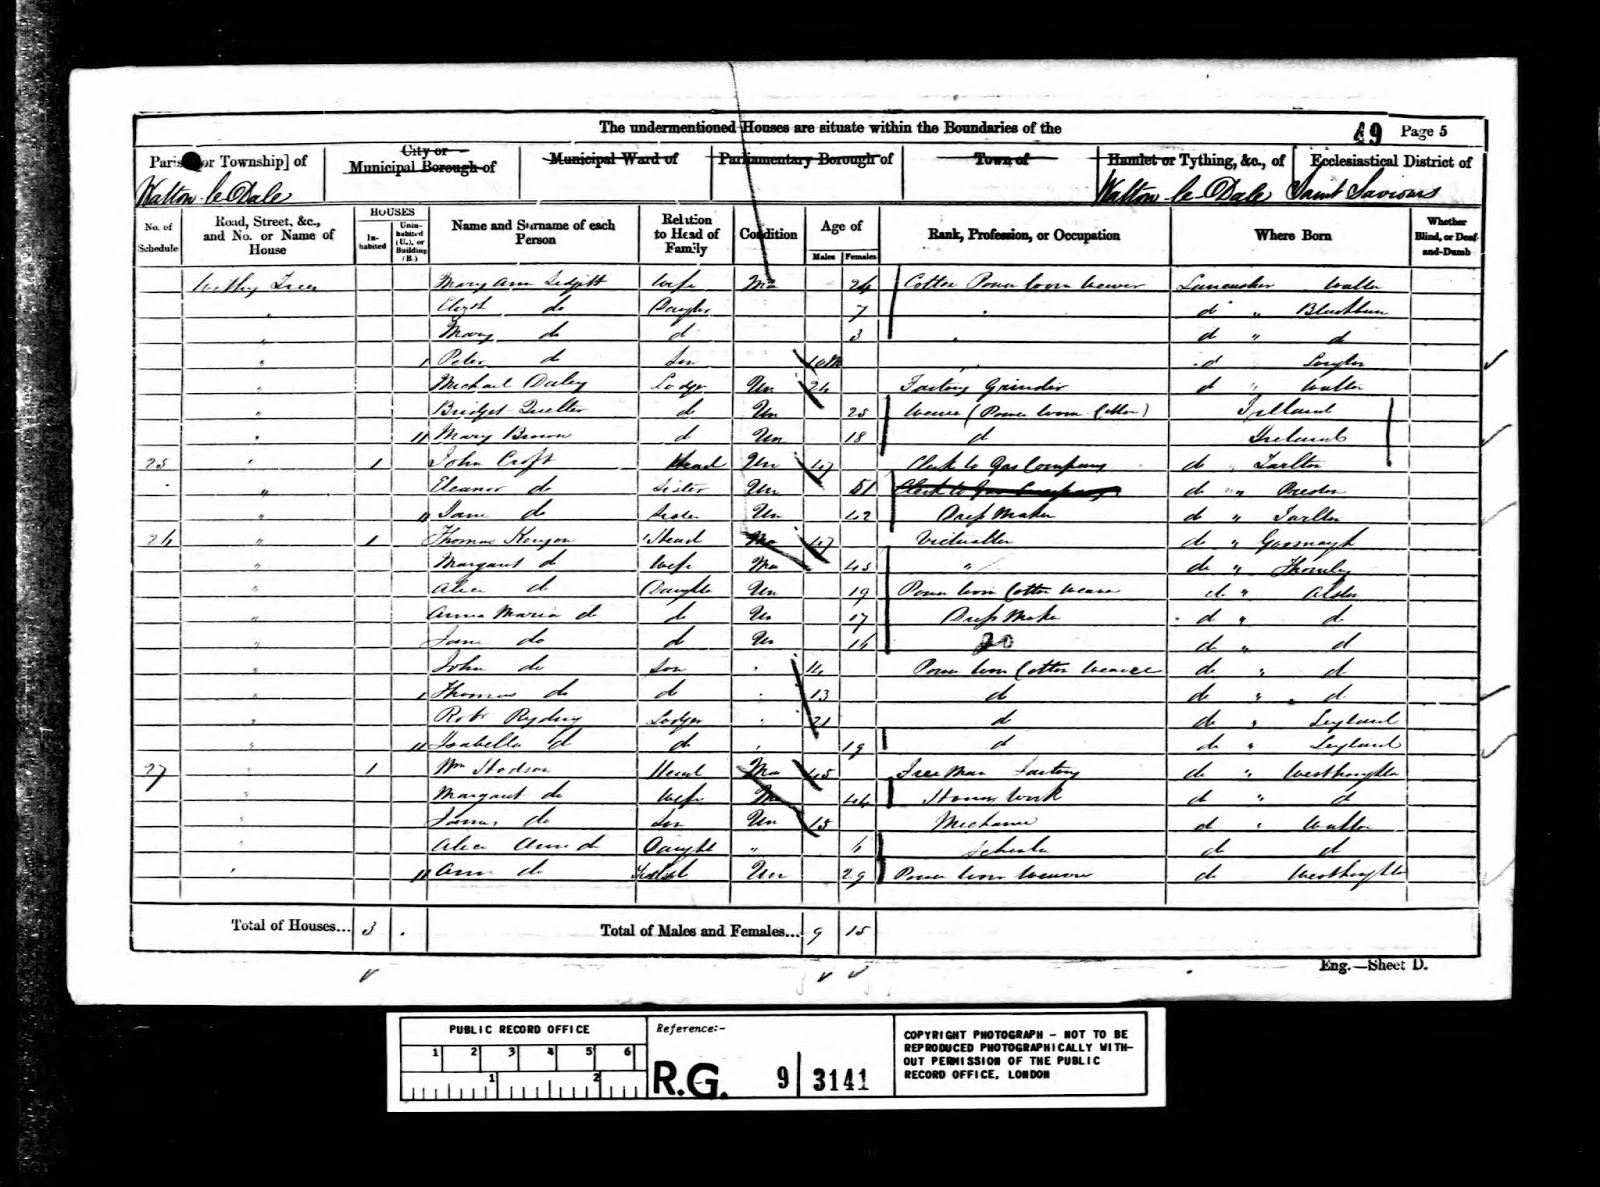 The undermentioned Houses are situate within the Boundaries of the
49 Page 5
Parish [or Township] of
City or
Municipal Borough of
Municipal Ward of
Parliamentary Borough of
Town of
Hamlet or Tything, &c., of
Ecclesiastical District of
Walton-le-Dale
Walton-le-Dale
Saint Saviours
No. of Schedule
Road, Street, &c., and No. or Name of House
HOUSES
In-habited
Unin-habited (U.), or Building (B.)
Name and Surname of each Person
Relation to Head of Family
Condition
Age of
Males
Females
Rank, Profession, or Occupation
Where Born
Whether Blind, or Deaf-and-Dumb
Mary Ann Wife Ma 24 Cotton Power Loom Weaver Lancashire Walton
Elizth do Daughter 7 d " Blackburn
Mary do d 3 d " d
Peter do Son 10 M d
Michael Daley Lodger Un 24 Grinder d " Walton
Bridget d Un 25 (Power Loom Cotton) Ireland
" Mary Brown d Un 18 d Ireland
25 " 1 John Croft Head Un 47 Clerk to Gas Company do " Tarlton
" Eleanor do Sister Un 51 Clerk to Gas Company do " Preston
" Jane do Sister Un 42 Dress Maker do " Tarlton
26 " 1 Thomas Kenyon Head Ma 47 Victualler do "
" Margaret d Wife Ma 45 " do " Thornley
" Alice d Daughter Un 19 Power Loom Cotton Weaver do "
" Anna Maria d d Un 17 Dress Maker d " d
" Jane do d Un do " d
" John do Son Power Loom Cotton Weaver do " d
" Thomas do d 13 d do " d
" Robt Lodger 21 d do " Leyland
" Isabella d d 19 d do " Leyland
27 " 1 Wm Hodson Head Ma 45 do " Westhoughton
" Margaret do Wife Ma 44 House Work d " d
" James do Son Un 15 Mechanic d " Walton
" Alice Ann d Daught " 6 Scholar d d
" Ann do Un 29 Power Loom Weaver d Westhoughton
Total of Houses... 3
Total of Males and Females... 9 15
Eng.—Sheet D.
PUBLIC RECORD OFFICE
1 2 3 4 5 6
1 2
Reference:-
R.G. 9 3141
COPYRIGHT PHOTOGRAPH - NOT TO BE
REPRODUCED PHOTOGRAPHICALLY WITH-
OUT PERMISSION OF THE PUBLIC
RECORD OFFICE, LONDON